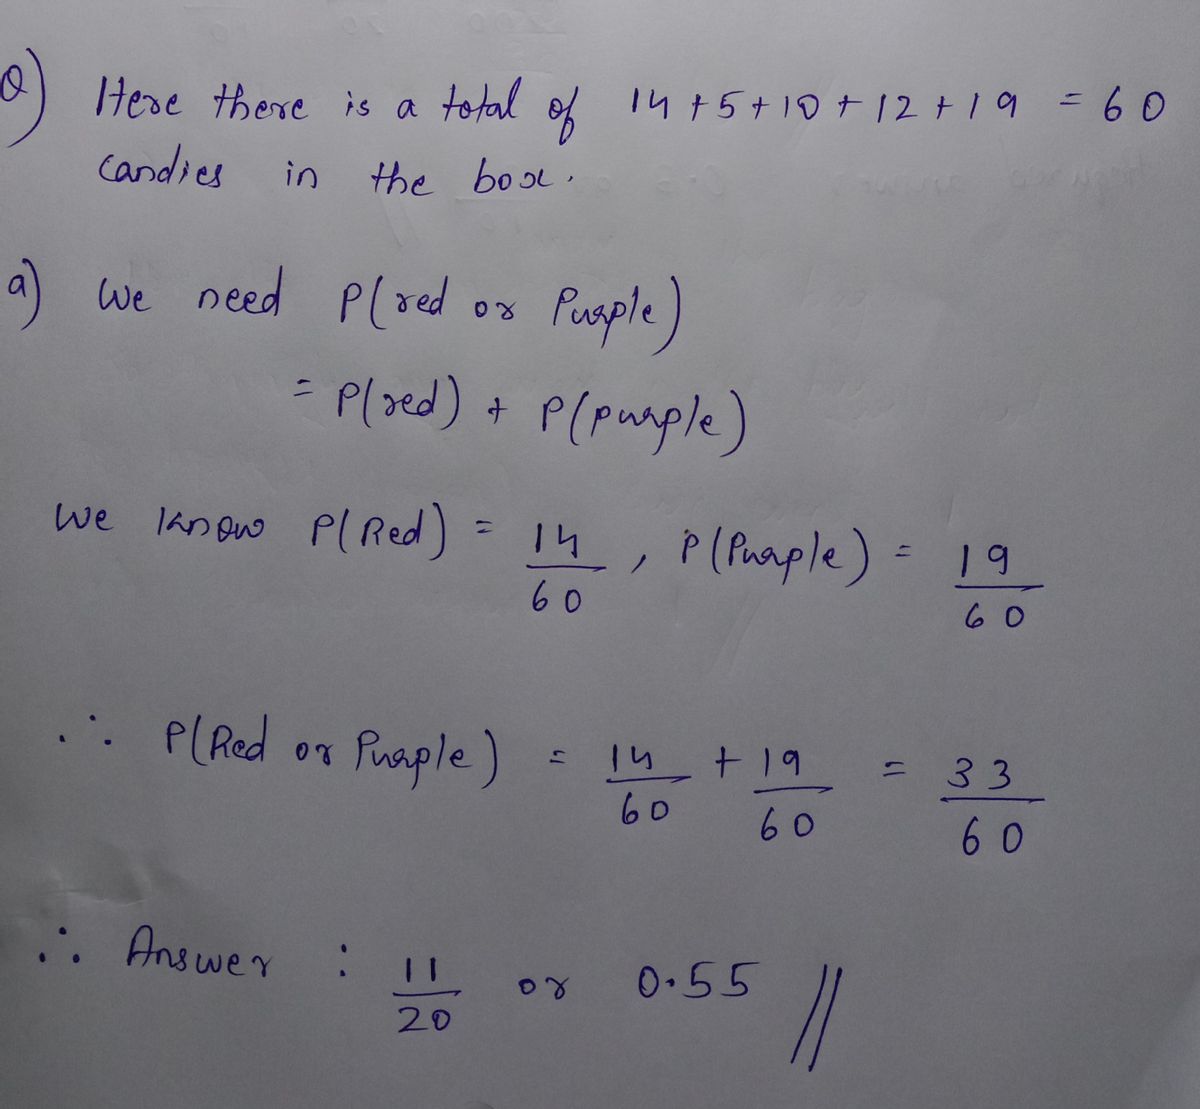 Q) Here there is a total of 14 + 5 + 10 + 12 + 19 = 60
candies in the box.
a) We need P(red or Purple)
= P(red) + P(purple)
We know P(Red) = 14/60 , P(Purple) = 19/60
∴ P(Red or Purple) = 14/60 + 19/60 = 33/60
∴ Answer : 11/20 or 0.55 //